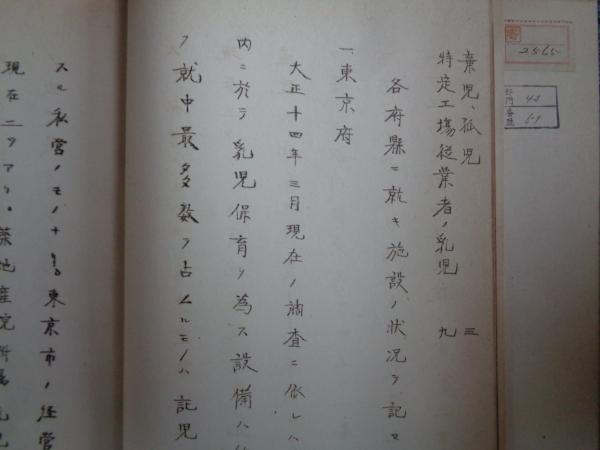 棄児、孤児 三
特定工場従業者ノ乳児 九
各府縣ニ就キ施設ノ状況ヲ記セ
一東京府
大正十四年三月現在ノ調査ニ依レハ
内ニ於テ乳児保育ノ為ス設備ハ
ヲ就中最多数ヲ占ムルモノハ託児
スル私営ノモノナリ 東京市ノ経営
現在二ヲアリ・築地産院所属乳児
2565
48